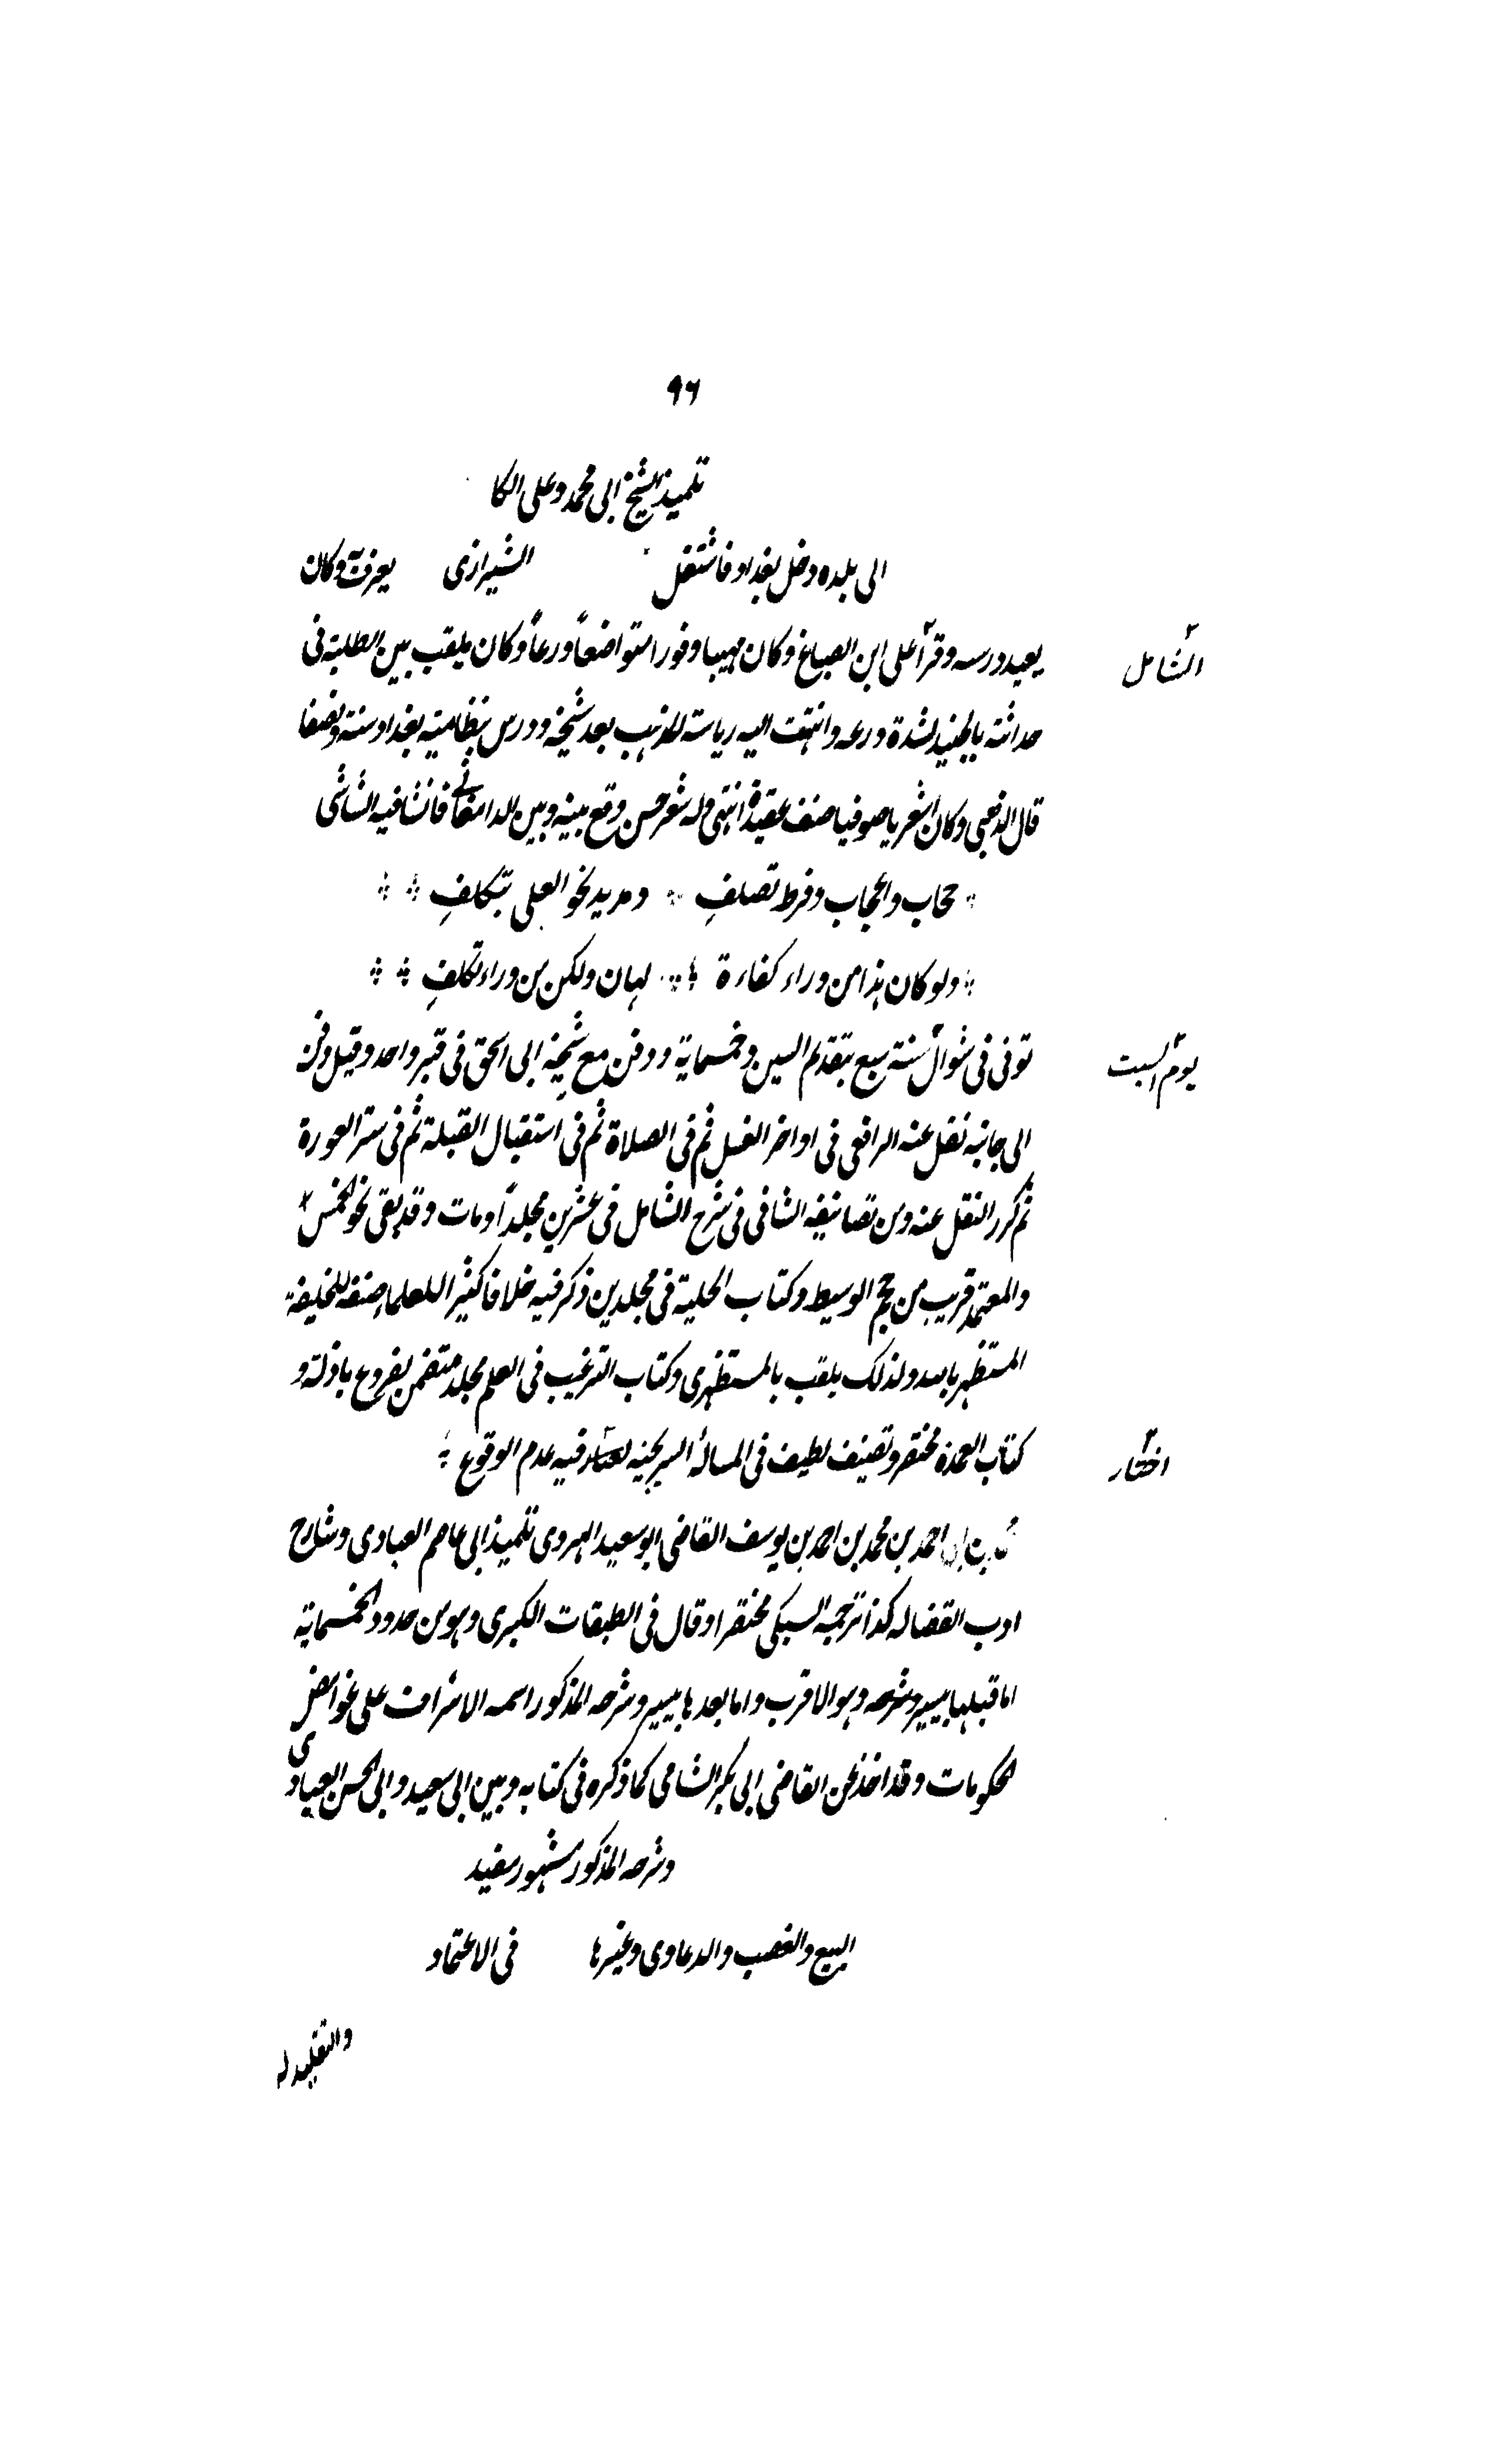 ٩٦
تلميذ الشيخ ابی محمد وعلى الكا
الى بلده دخل بغداد فاشتغل الشيرازی يعرف به وكان
يعيد درسه وقرأ على ابن الصباغ وكان مهيبا وقورا متواضعاً ورعاً وكان يلقب بين الطلبة فی
الشامل
حداثته بالجنيد لشدة ورعه وانتهت اليه رياسة المذهب بعد شيخه ودرس بنظامية بغداد سنة ونصفا
قال الذهبی وكان اشعريا صوفيا صنف عقيدة انتهى وله شعر حسن وقع بينه وبين الدامغانی فانشا فيه الشاشی
حجاب واعجاب وفرط تصلفٍ ومد يد نحو العلى بتكلفٍ
ولو كان هذا من وراء كفاءة لهان ولكن من وراء تكلفٍ
توفی فی شوال سنة سبع بتقديم السين وخمسماية ودفن مع شيخه ابی اسحق فی قبر واحد وقيل دفن
يوم السبت
الى جانبه نقل عنه الرافعی فی اواخر الغسل ثم فی الصلاة ثم فی استقبال القبلة ثم فی ستر العورة
ثم كرر النقل عنه ومن تصانيفه الشافی فی شرح الشامل فی عشرين مجلداً ومات وقد بقی نحو الخمس
والمعتمد قريب من حجم الوسيط وكتاب الحلية فی مجلدين ذكر فيه خلافا كثيرا للعلما صنفه للخليفة
المستظهر بالله ولذلك يلقب بالمستظهری وكتاب الترغيب فی العلم مجلد متضمن بفروع بادلة و
كتاب العمدة مختصر وتصنيف لطيف فی المسالة السريجية فيه عدم الوقوع
اختار
بن احمد بن محمد بن احمد بن يوسف القاضی ابو سعيد الهروی تلميذ ابی عاصم العبادی وشارح
ادب القضا له كذا ترجمه السبكی مختصرا وقال فی الطبقات الكبری وهو من حدود الخمسماية
اما قبلها بيسير وشرحه وهو الاقرب واما بعدها بيسير وشرحه المذكور اسمه الاشراف على غوامض
الحكومات وقد اخذ عن القاضی ابی بكر الشامی كما ذكره فی كتابه وبين ابی سعيد وابی الحسن العبادی
وشرحه المذكور مشهور مفيد
البيع والغصب والدعاوی وغيرها فی الاعتماد
والتقليد له